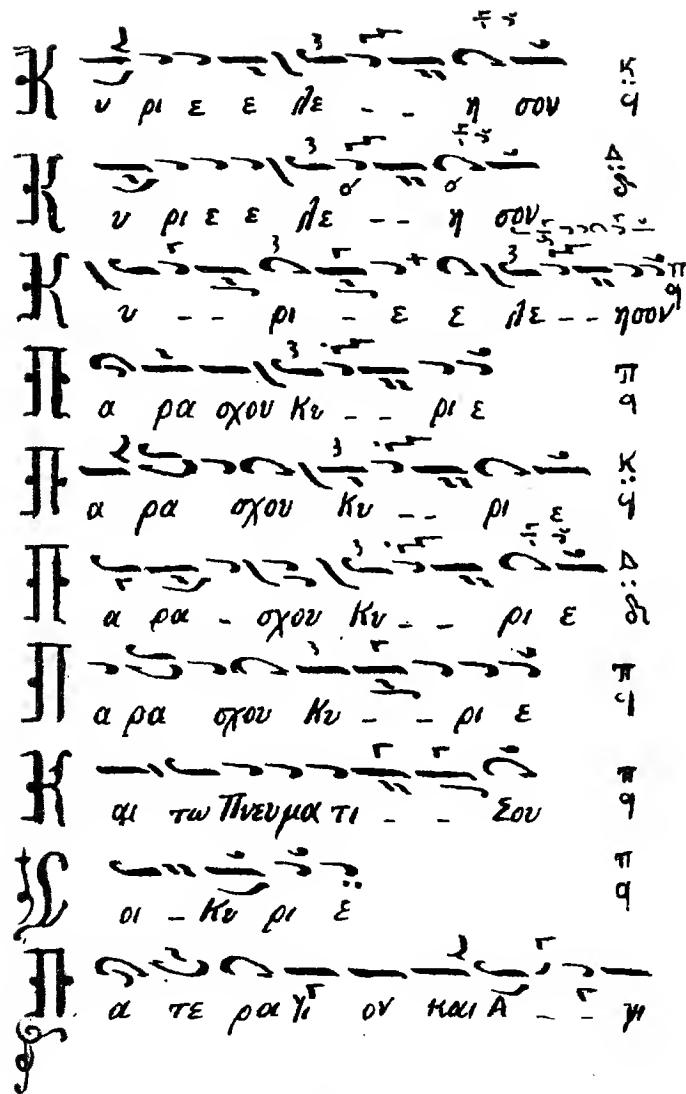 Κ υ ρι ε ε λε - - η σον
Κ υ ρι ε ε λε - - η σον
Κ υ - - ρι - ε ε λε - - ησον
Π α ρα σχου Κυ - - ρι ε
Π α ρα σχου Κυ - - ρι ε
Π α ρα - σχου Κυ - - ρι ε
Π α ρα σχου Κυ - - ρι ε
Κ αι τω Πνευμα τι - - Σου
Σ οι - Κυ ρι ε
Π α τε ρα Υι ον και Α - - γι